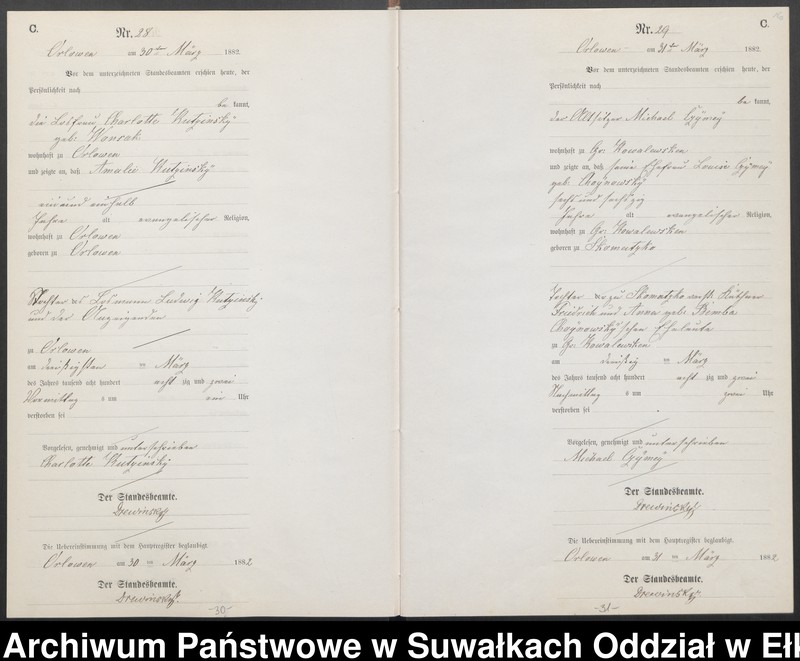 C.
Nr. 28
Orlowen am 30ten März 1882.
Vor dem unterzeichneten Standesbeamten erschien heute, der
Persönlichkeit nach
be kannt,
die Losfrau Charlotte Kutzinsky
geb. Wonrak
wohnhaft zu Orlowen
und zeigte an, daß Amalie Kutzinsky
ein und einhalb
Jahre alt evangelischer Religion,
wohnhaft zu Orlowen
geboren zu Orlowen
Tochter des Losmann Ludwig Kutzinsky
und der Anzeigenden
zu Orlowen
am dreißigsten ten März
des Jahres tausend acht hundert acht zig und zwei
Vormittag s um ein Uhr
verstorben sei
Vorgelesen, genehmigt und unterschrieben
Charlotte Kutzinsky
Der Standesbeamte.
Drewinsky
Die Uebereinstimmung mit dem Hauptregister beglaubigt
Orlowen am 30 ten März 1882
Der Standesbeamte.
Drewinsky
-30-
C.
Nr. 29
Orlowen am 31ten März 1882.
Vor dem unterzeichneten Standesbeamten erschien heute, der
Persönlichkeit nach
be kannt,
der Altsitzer Michael Gÿmeÿ
wohnhaft zu Gr. Kowalewsken
und zeigte an, daß seine Ehefrau Louise Gÿmeÿ
geb. Choÿnowskÿ
sechs und sechszig
Jahre alt evangelischer Religion,
wohnhaft zu Gr. Kowalewsken
geboren zu Skomatzko
Tochter der zu Skomatzko verst. Käthner
Friedrich und Anna geb. Bemba
Choÿnowskÿ'schen Eheleute
zu Gr. Kowalewsken
am dreißig ten März
des Jahres tausend acht hundert acht zig und zwei
Nachmittag s um zwei Uhr
verstorben sei
Vorgelesen, genehmigt und unterschrieben
Michael Gÿmeÿ
Der Standesbeamte.
Drewinsky
Die Uebereinstimmung mit dem Hauptregister beglaubigt
Orlowen am 31 ten März 1882
Der Standesbeamte.
Drewinsky
-31-
Archiwum Państwowe w Suwałkach Oddział w Ełk